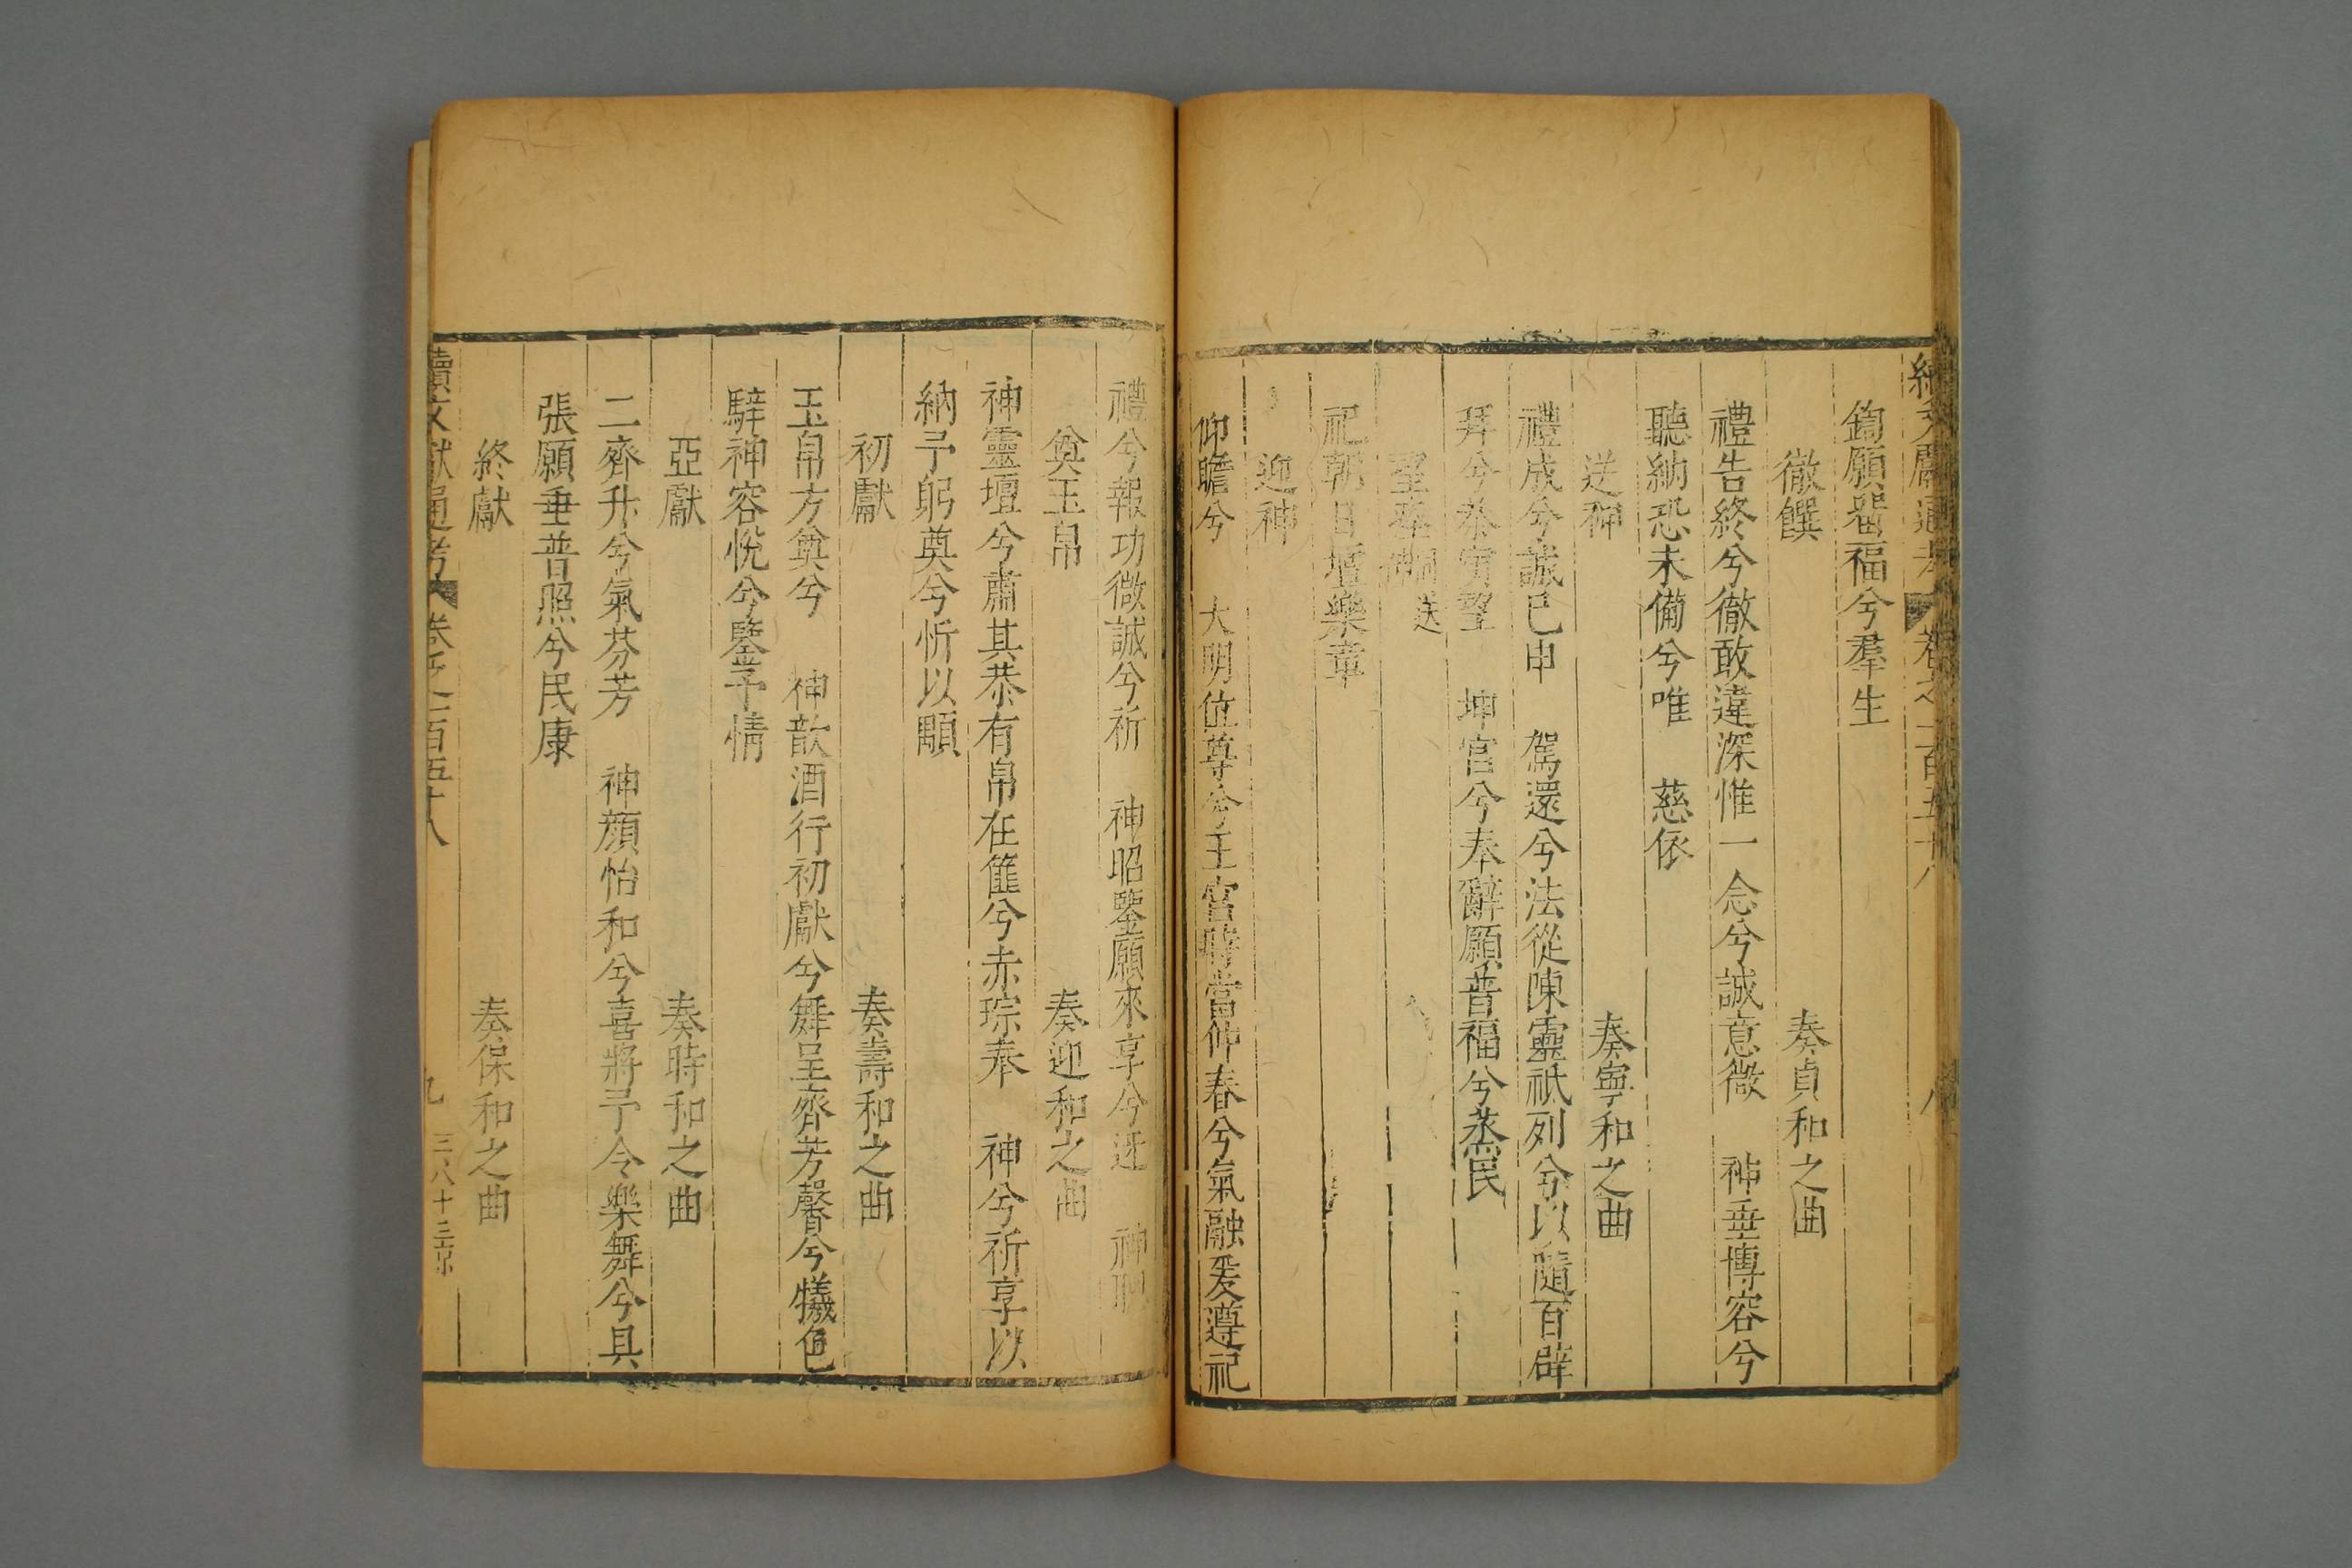 鈞願畀福兮羣生
徹饌 奏貞和之曲
禮告終兮徹敢違深惟一念兮誠意微 神垂博容兮
聽納恐未備兮唯 慈依
送神 奏寧和之曲
禮成兮誠已申 駕還兮法從陳靈祇列兮以隨百辟
拜兮恭 望 坤宮兮奉辭願普福兮烝民
望 送
祀朝日壇樂章
迎神
仰瞻兮 大明位尊兮王宮時當仲春兮氣融爰遵祀
禮兮報功微誠兮祈 神昭鑒願來享兮迓 神聰
奠玉帛 奏迎和之曲
神靈壇兮肅其恭有帛在篚兮赤琮奉 神兮祈享以
納予躬奠兮忻以顒
初獻 奏壽和之曲
玉帛方奠兮 神歆酒行初獻兮舞呈齊芳馨兮犧色
騂神容悅兮鑒予情
亞獻 奏時和之曲
二齊升兮氣芬芳 神顔怡和兮喜將予令樂舞兮具
張願垂普照兮民康
終獻 奏保和之曲
續文獻通考 卷之一百五十八 九 三八十三